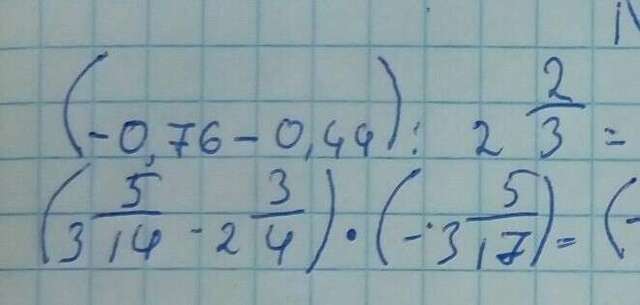 (-0,76-0,44) : 2 2/3 =
(3 5/14 - 2 3/4) · (-3 5/17) = (-